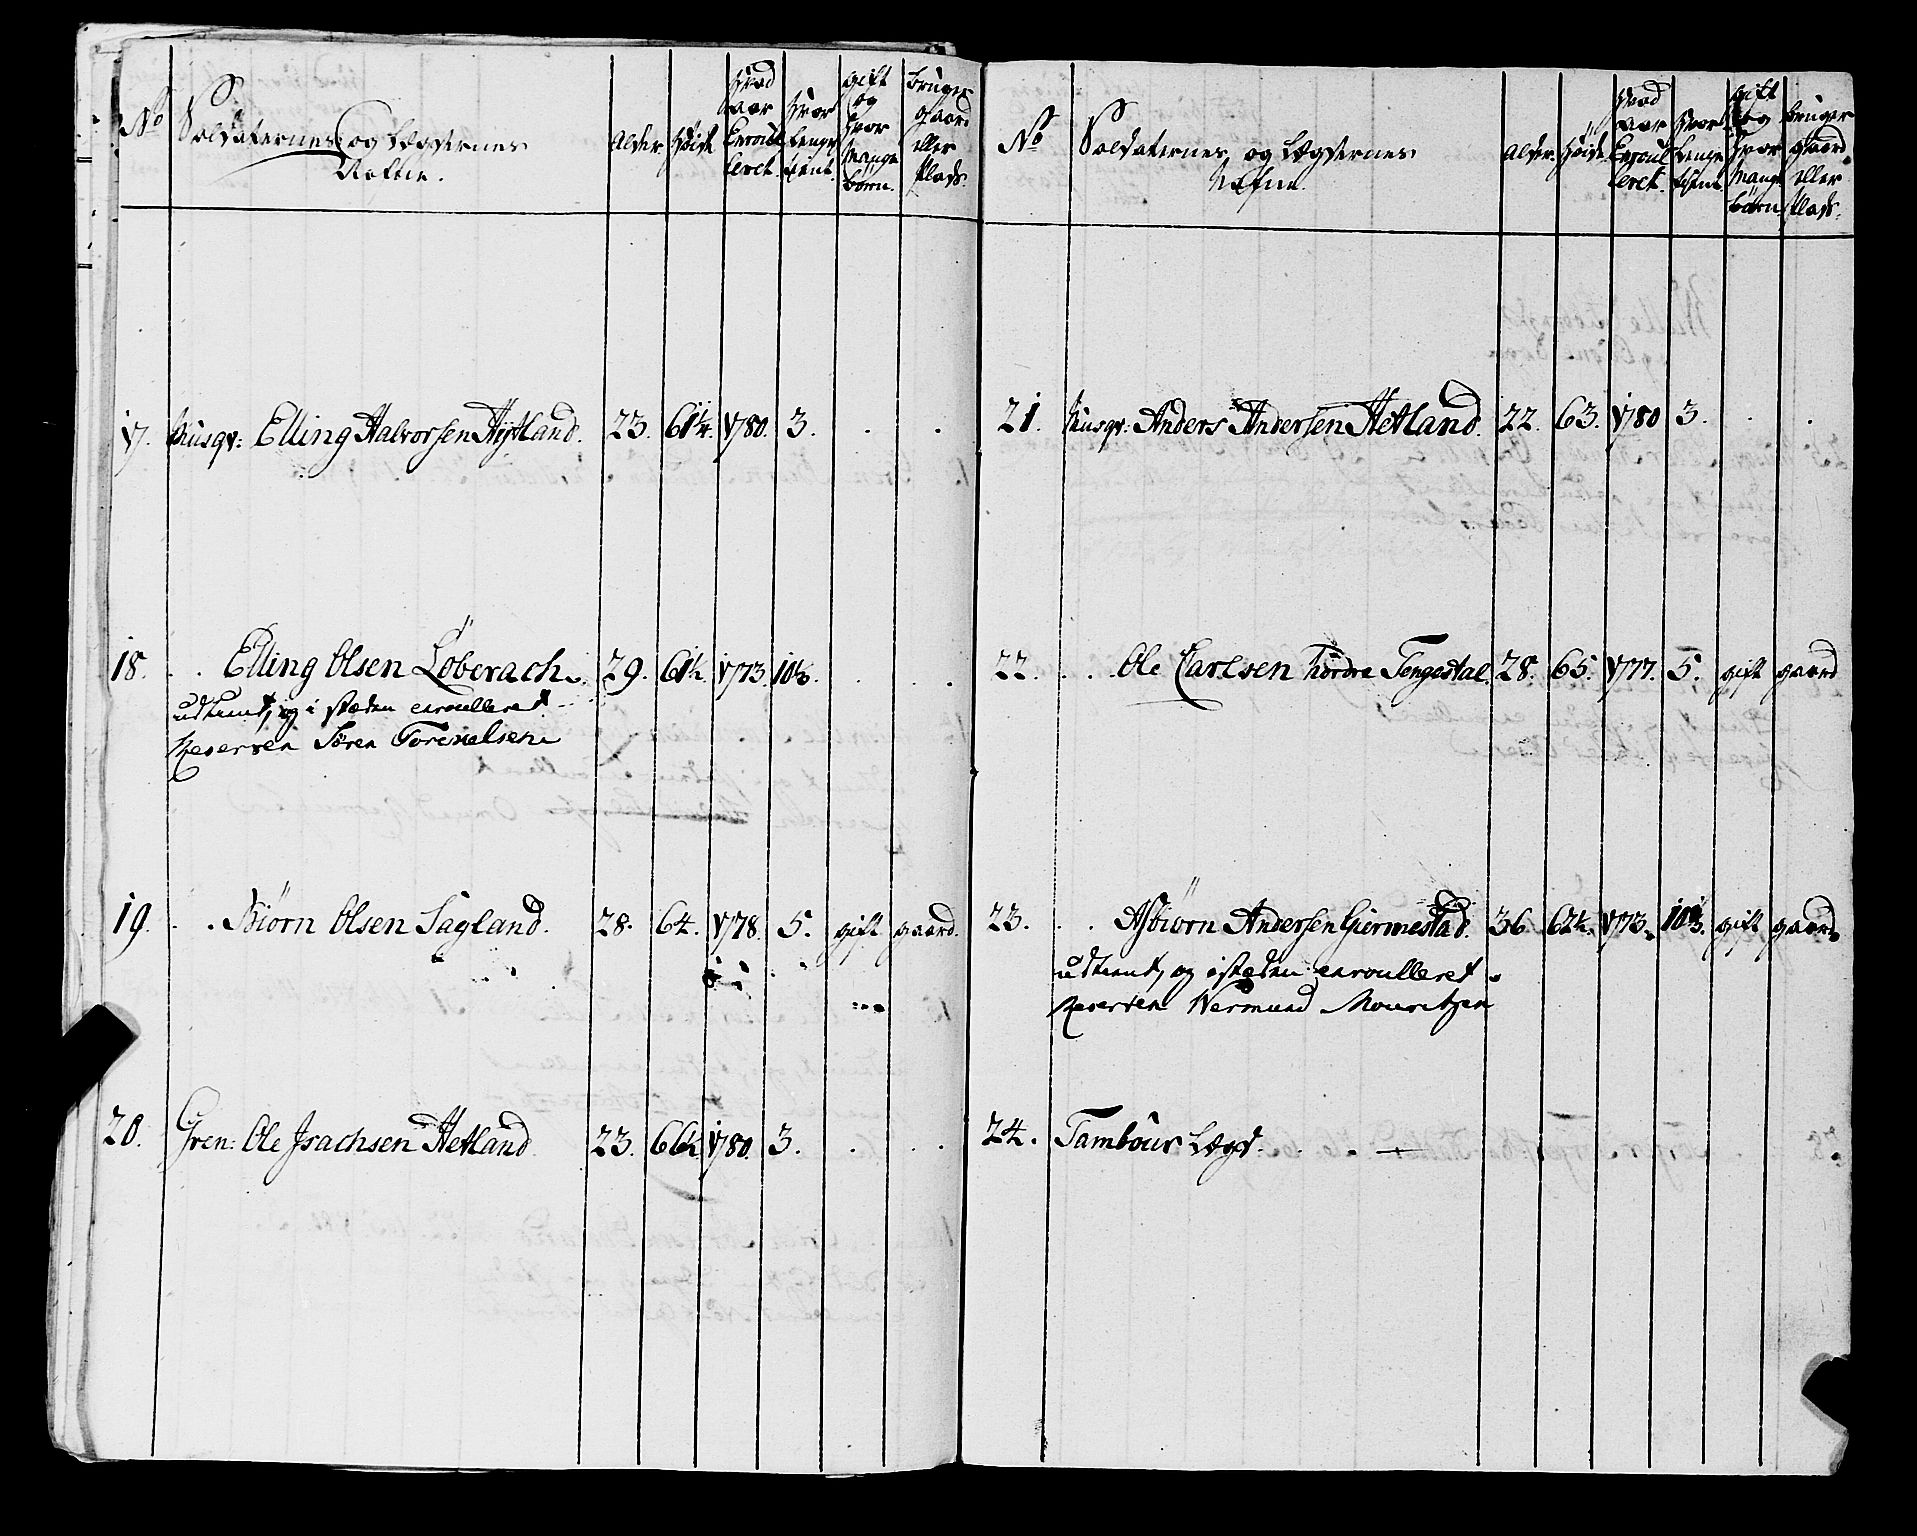 No
Soldaternes og Lægdernes
Nafne.
Alder
Høide
Hvad
aar
Enroul
leret.
Hvor
Lenge
tient.
gift
og
Hvor
mange
børn.
bruger
gaard
eller
Plads.
17. Musqr: Elling Halvorsen Høtland. 23. 61¼. 1780. 3. . .
18. . . Elling Olsen Løberach. 29. 61½ 1773. 10½. . .
udtient, og i stæden enroulleret
Reserven Søren Torkelsen
19. . . Biørn Olsen Sagland. 28. 64. 1778. 5. gift gaard.
20. Gren: Ole Isachsen Hetland. 23. 66½ 1780. 3. . .
No
Soldaternes og Lægdernes
Nafne.
Alder
Høide
Hvad
aar
Enroul
leret.
Hvor
Lenge
tient
gift
og
Hvor
mange
børn
bruger
gaard
eller
Plads.
21. Musqr: Anders Andersen Hetland. 22. 63. 1780 3. . .
22. . . Ole Carlsen Nordre Tengesdal. 28. 65. 1777. 5. gift gaard
23. . . Asbiørn Andersen Giermestad. 36 62¼. 1773. 10½. gift gaard
udtient, og istæden enroulleret
Reserven Wermund Mouritzen
24. Tambour Lægd. . . —